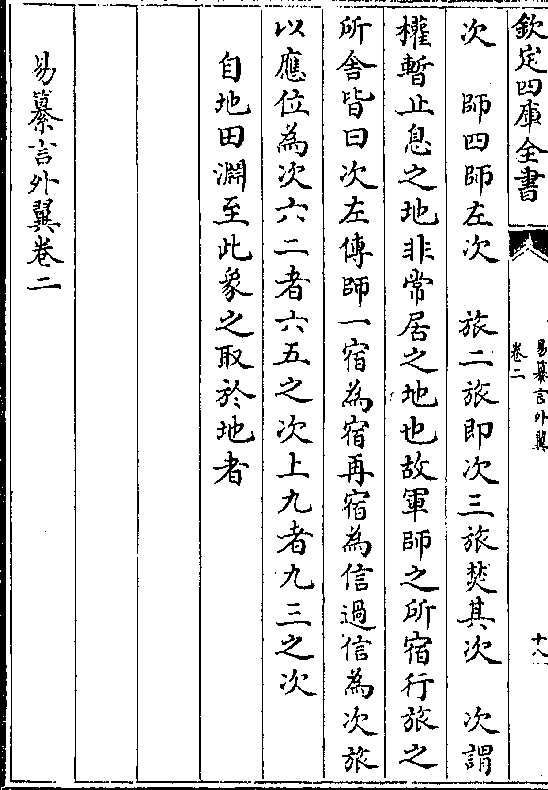 欽定四庫全書
易纂言外翼
卷二
十八
次　師四師左次　旅二旅即次三旅焚其次　次謂
權暫止息之地非常居之地也故軍師之所宿行旅之
所舍皆曰次左傳師一宿為宿再宿為信過信為次旅
以應位為次六二者六五之次上九者九三之次
自地田淵至此象之取於地者
易纂言外翼卷二